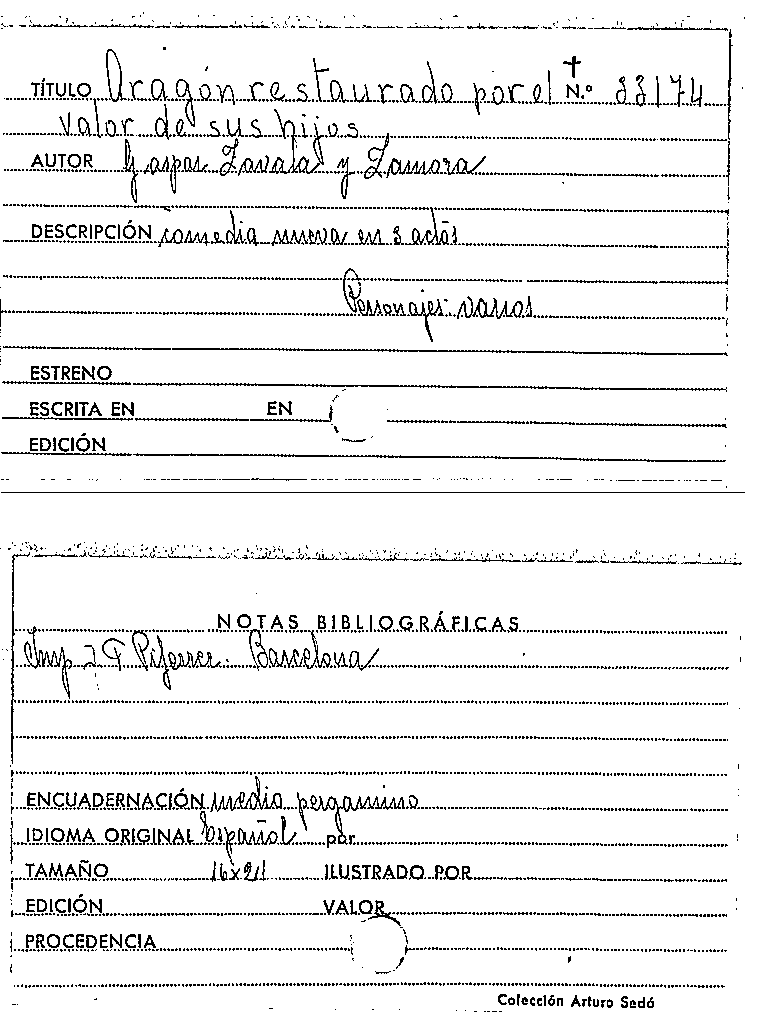 TÍTULO Aragón restaurado por el N.º 33174
valor de sus hijos
AUTOR Gaspar Zavala y Zamora
DESCRIPCIÓN Comedia nueva en 3 actos
Personajes: varios
ESTRENO
ESCRITA EN EN
EDICIÓN
NOTAS BIBLIOGRÁFICAS
Imp J F Piferrer. Barcelona
ENCUADERNACIÓN media pergamino
IDIOMA ORIGINAL Español por
TAMAÑO 16x21 ILUSTRADO POR
EDICIÓN VALOR
PROCEDENCIA
Colección Arturo Sedó